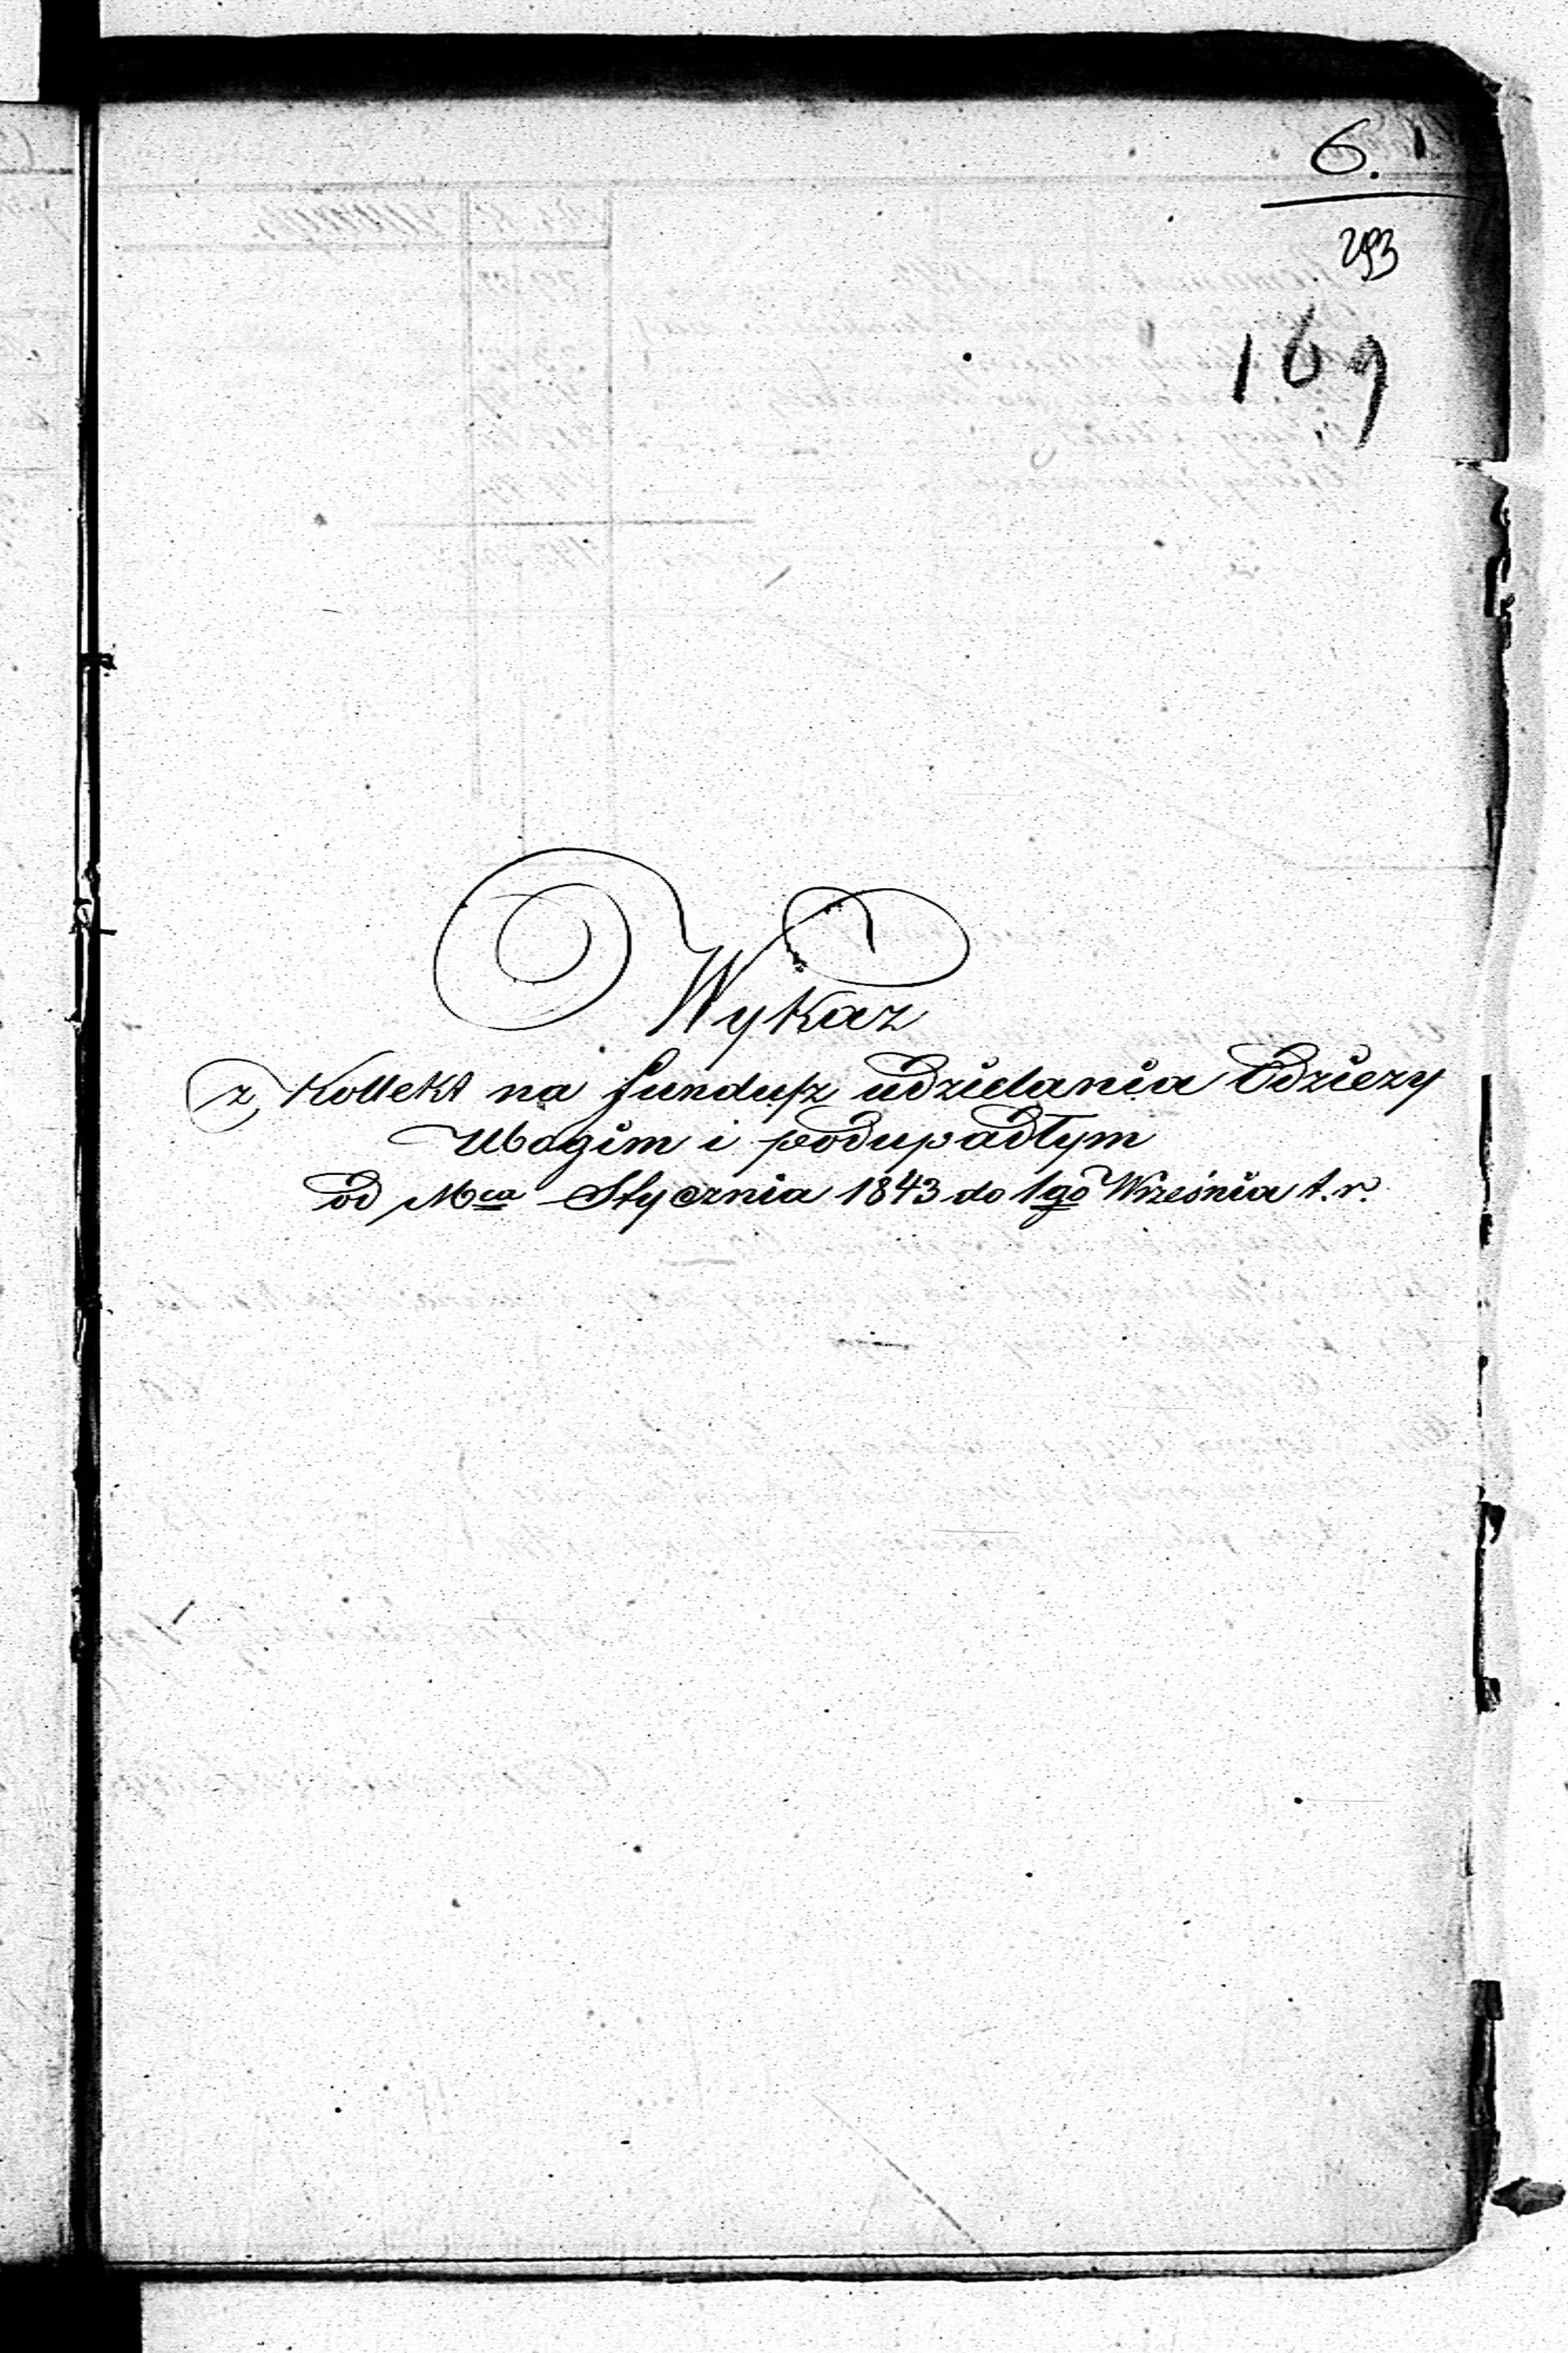 6.
293
169
Wykaz
z Kollekt na fundusz udzielania Odzieży
Ubogim i podupadłym
od Mca Stycznia 1843 do 1go Września t. r.